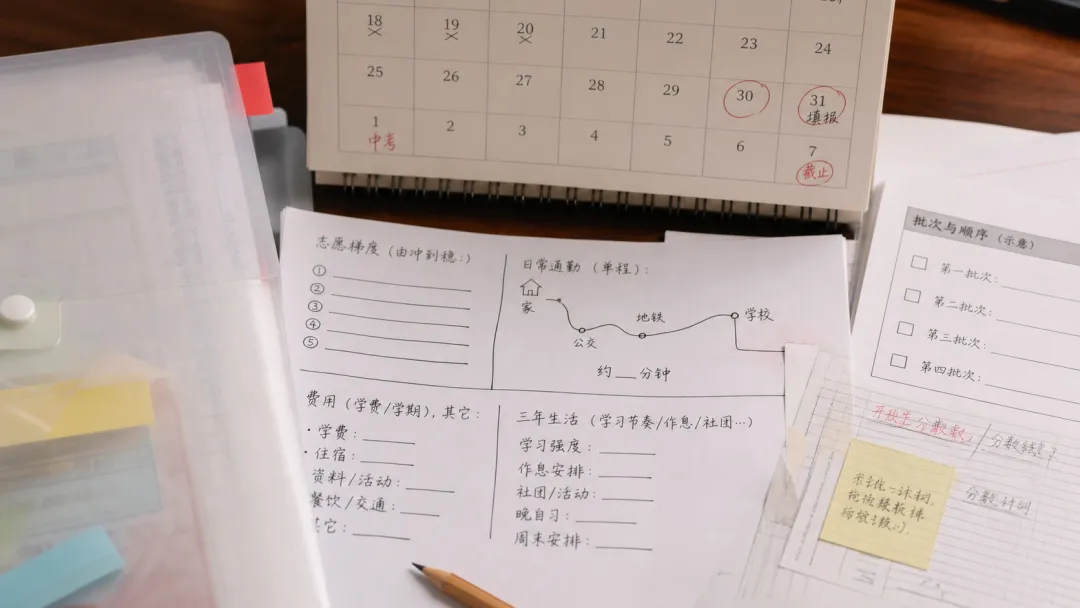 18 19 20 21 22 23 24
25 26 27 28 29 30 31
填报
1 2 3 4 5 6 7
中考
截止
志愿梯度（由冲到稳：）
①
②
③
④
⑤
日常通勤（单程）：
家
公交
地铁
学校
约___分钟
费用（学费/学期），其它：
· 学费：
· 住宿：
资料/活动：
餐饮/交通：
其它：
三年生活（学习节奏/作息/社团…）
学习强度：
作息安排：
社团/活动：
晚自习：
周末安排：
批次与顺序（示意）
第一批次：
第二批次：
第三批次：
第四批次：
分数
分数